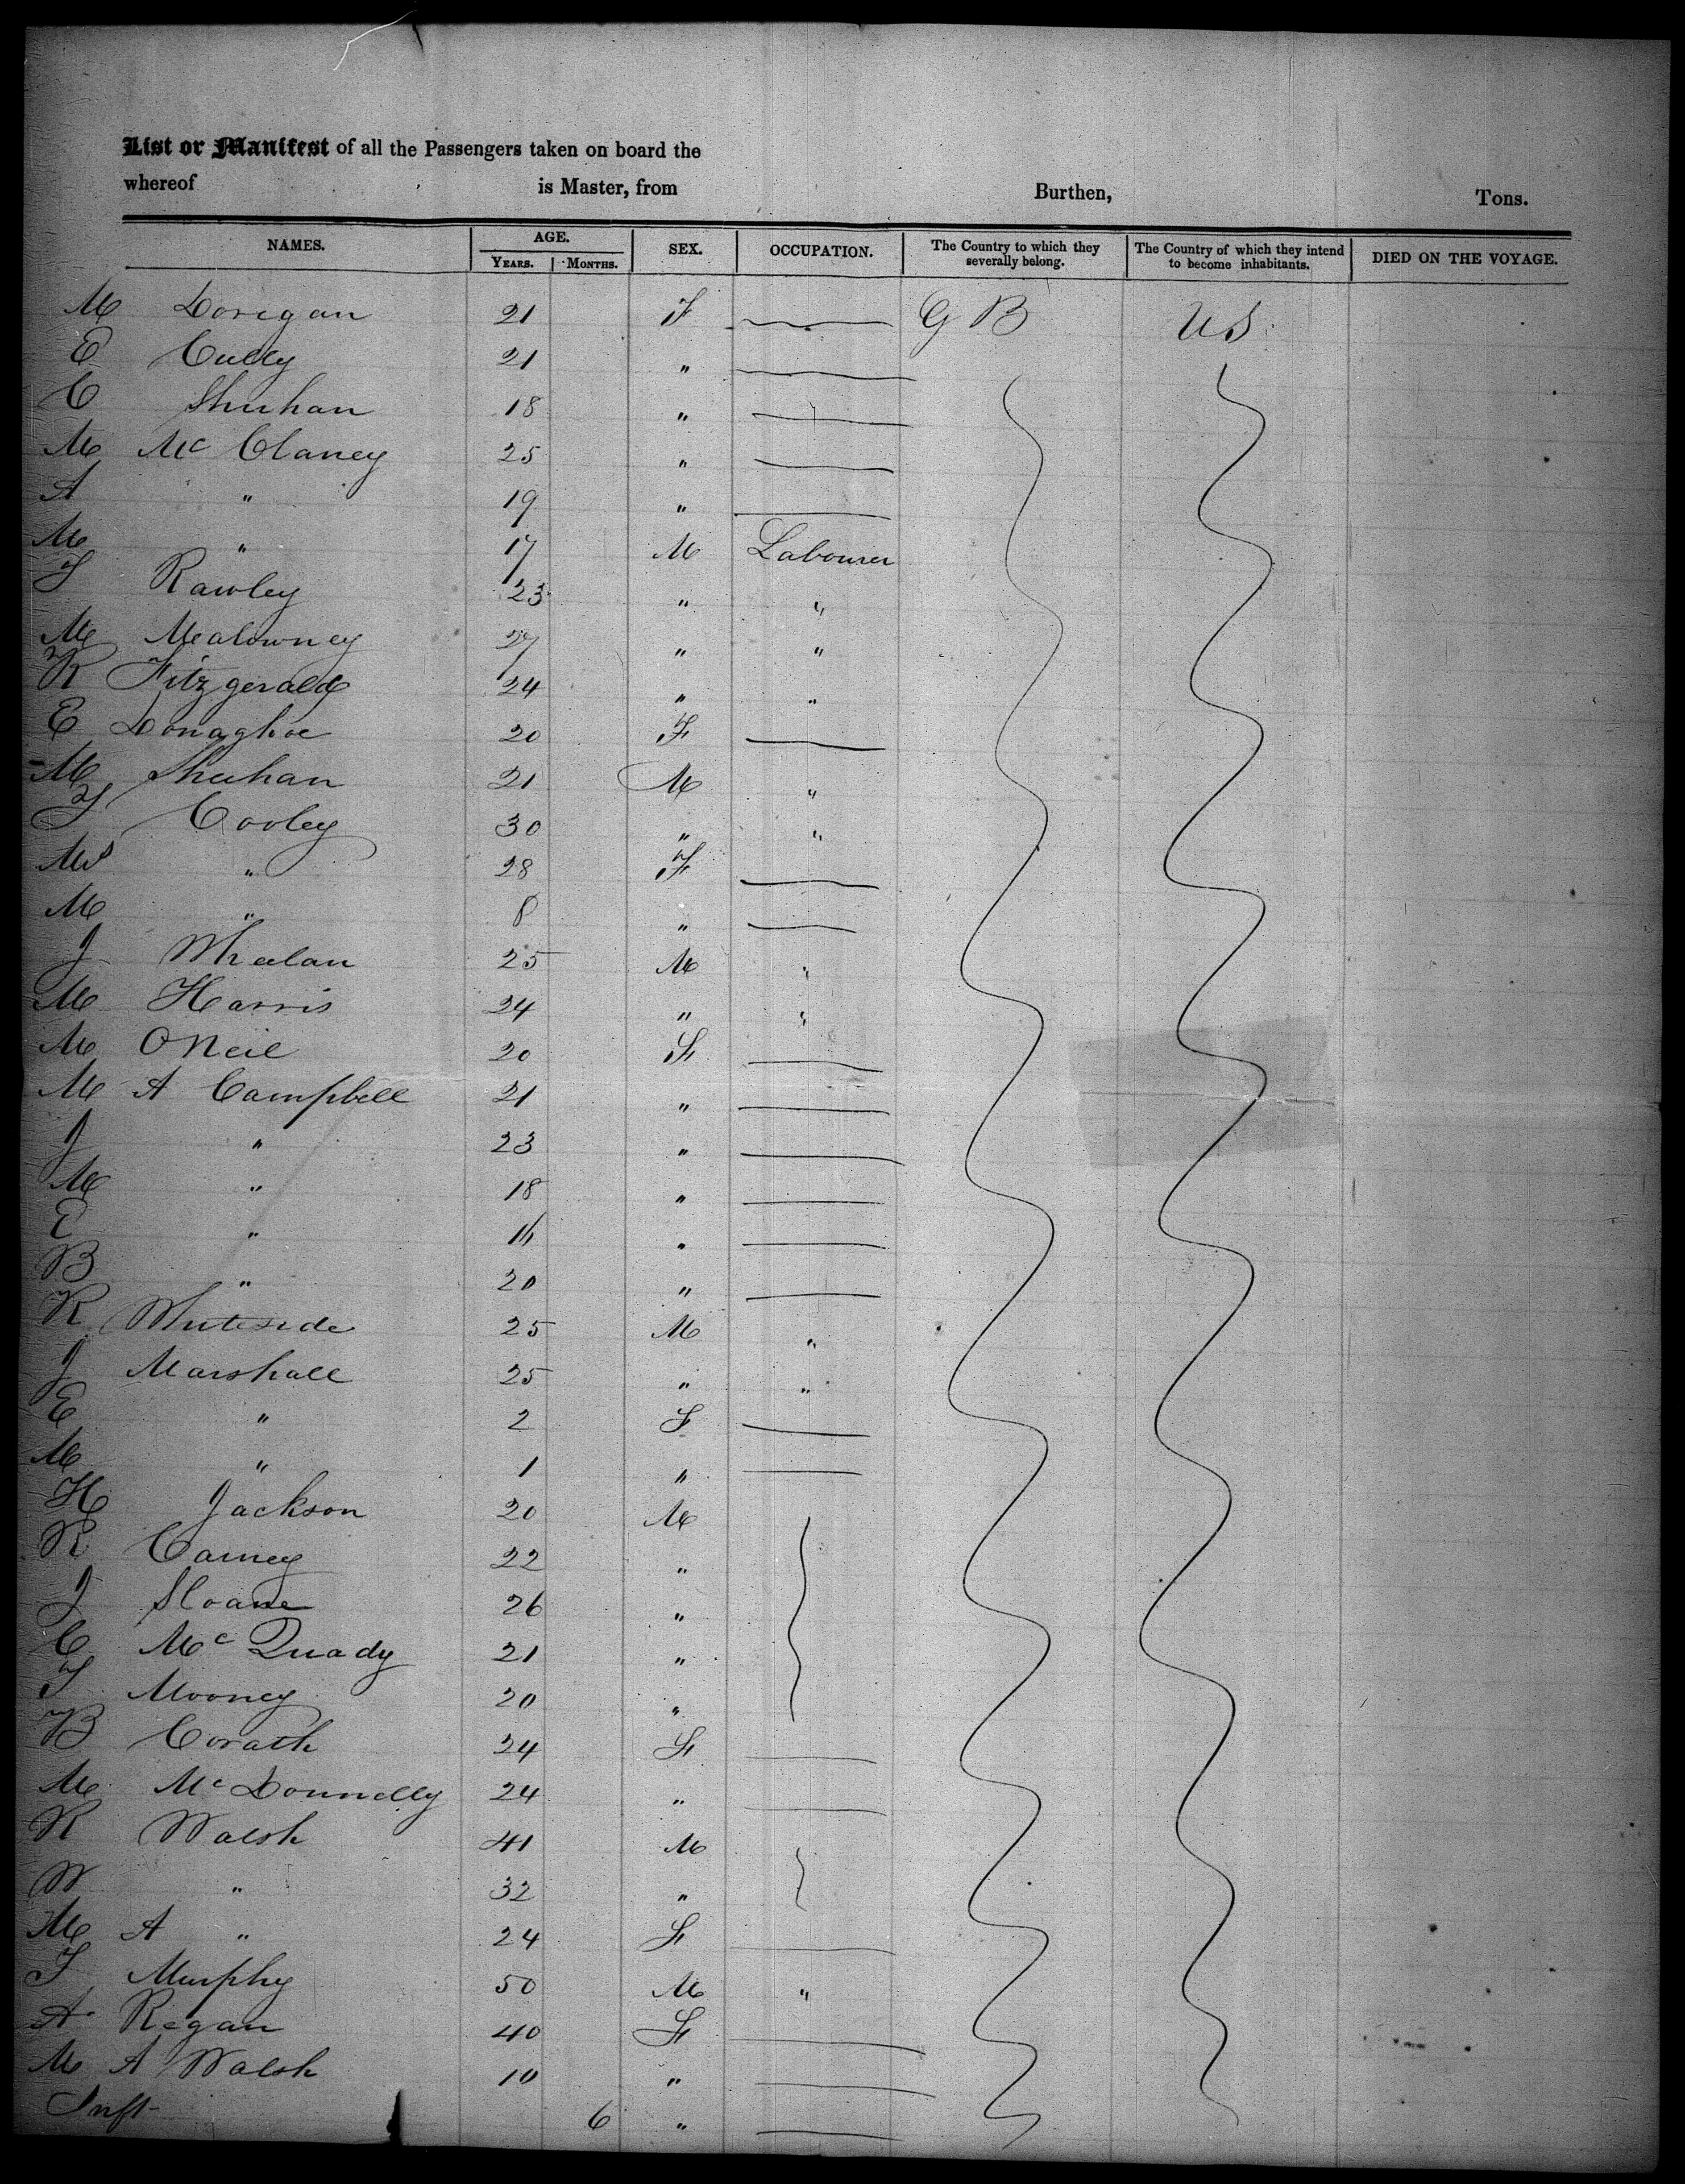 List or Manifest of all the Passengers taken on board the
whereof is Master, from Burthen, Tons.
NAMES. AGE. SEX. OCCUPATION. The Country to which they severally belong. The Country of which they intend to become inhabitants. DIED ON THE VOYAGE.
YEARS. MONTHS.
M Dorigan 21 F — G B U S
E Cully 21 " —
C Shuhan 18 " —
M Mc Claney 25 " —
A " 19 " —
M " 17 M Labourer
T Rawley 23 " "
M Mealowney 27 " "
R Fitzgerald 24 " "
E Donaghoe 20 F —
M Shuhan 21 M "
T Cooley 30 " "
Mrs " 28 F —
M " 8 " —
J Whealan 25 M "
M Harris 24 " "
M ONeil 20 F —
M A Campbell 21 " —
J " 23 " —
M " 18 " —
E " 16 " —
B " 20 " —
R Whiteside 25 M "
J Marshall 25 " "
E " 2 F —
M " 1 " —
H Jackson 20 M
R Carney 22 "
J Sloane 26 "
C Mc Quady 21 "
T Mooney 20 "
B Corath 24 F —
M Mc Donnelly 24 " —
R Walsh 41 M
W " 32 "
M A " 24 F —
T Murphy 50 M "
A Regan 40 F —
M A Walsh 10 " —
Inft 6 " —